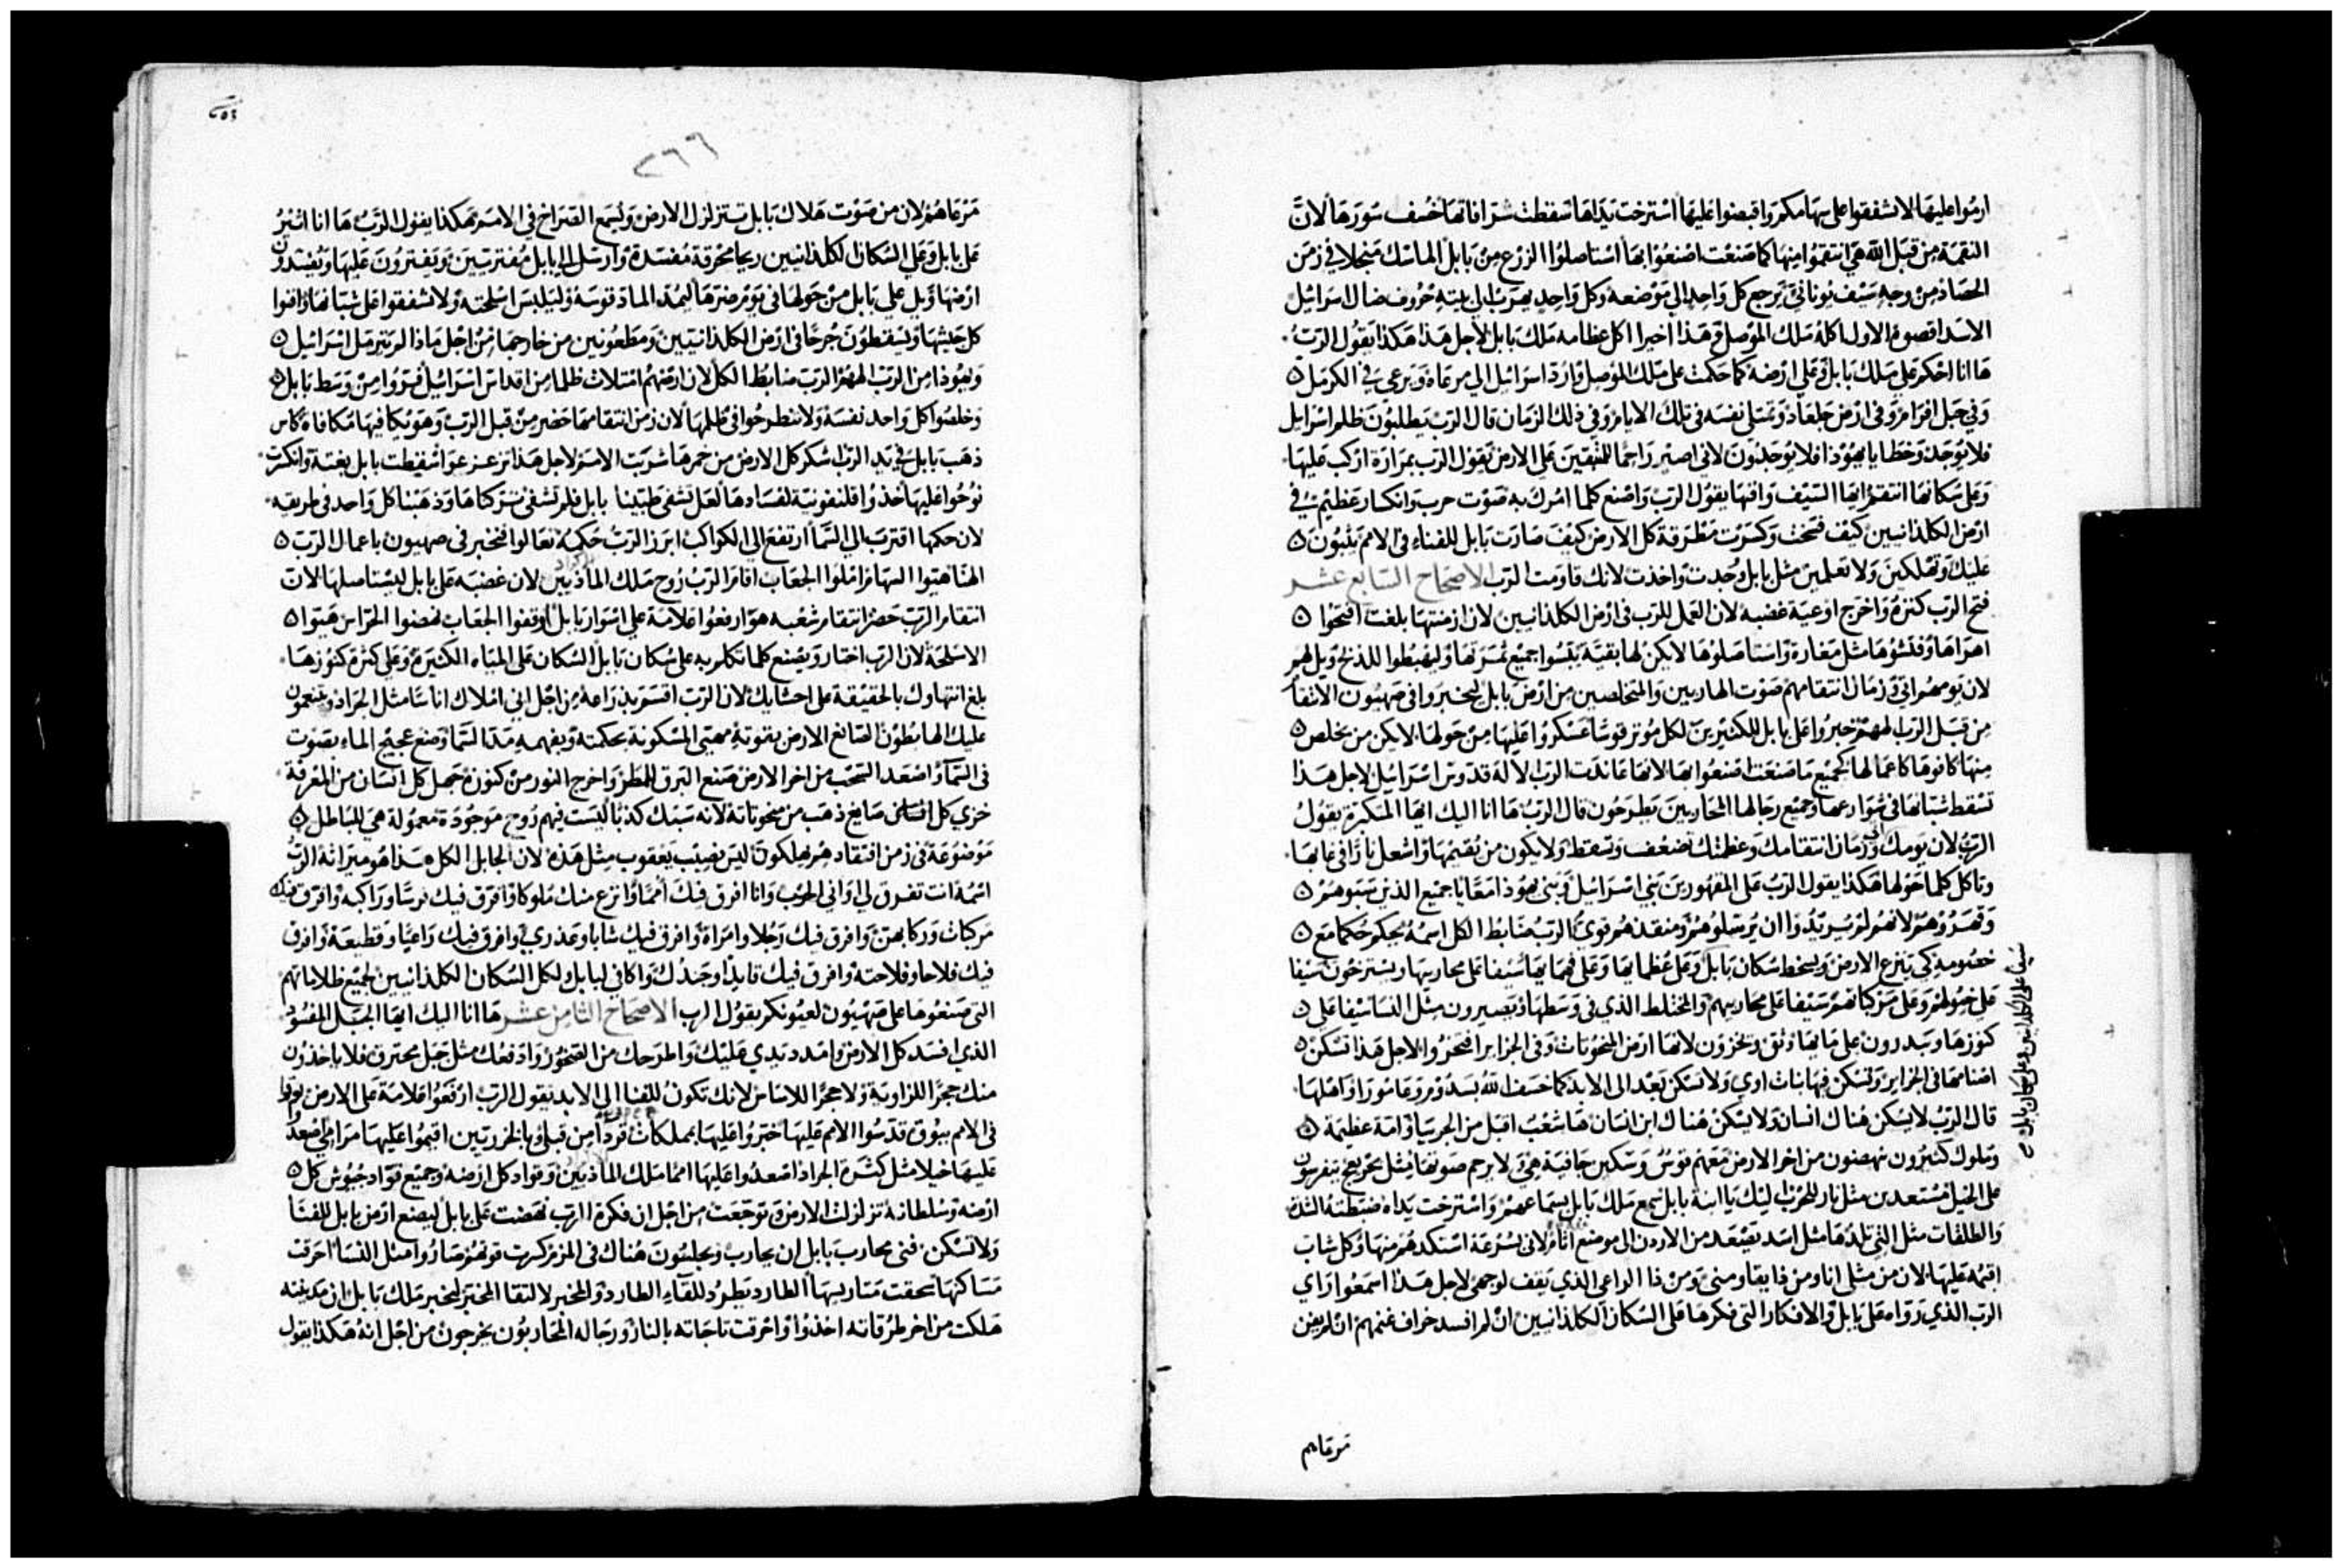 ارموا عليها لا تشفقوا على سهامكم واقبضوا عليها استرخت يداها سقطت شرافاتها خسف سورها لان
النقمة من قبل الله هي انتقموا منها كما صنعت اصنعوا بها استاصلوا الزرع من بابل الماسك منجلا في زمن
الحصاد من وجه سيف يوناني يرجع كل واحد الى موضعه وكل واحد يهرب الى بيته خروف ضال اسرائيل
الاسد اقصوه الاول اكله ملك الموصل وهذا اخيرا اكل عظامه ملك بابل لاجل هذا هكذا يقول الرب
ها انا احكم على ملك بابل وعلى ارضه كما حكمت على ملك الموصل وارد اسرائيل الى مرعاه ويرعى في الكرمل
وفي جبل افرام وفي ارض جلعاد وتمتلى نفسه في تلك الايام وفي ذلك الزمان قال الرب يطلبون ظلم اسرايل
فلا يوجد وخطايا يهوذا فلا يوجدون لاني اصير راحما للمتبقين على الارض يقول الرب بمرارة اركب عليها
وعلى سكانها انتقم ايها السيف وافنها يقول الرب واصنع كلما امرك به صوت حرب وانكسار عظيم في
ارض الكلدانيين كيف سحقت وكسرت مطرقة كل الارض كيف صارت بابل للفناء في الامم يثبون
عليك وتهلكين ولا تعلمين مثل بابل وجدت واخذت لانك قاومت الرب الاصحاح السابع عشر
فتح الرب كنزه واخرج اوعية غضبه لان العمل للرب في ارض الكلدانيين لان ازمنتها بلغت افتحوا
اهراها وفتشوها مثل مغارة واستاصلوها لا يكن لها بقية يبسوا جميع ثمرتها وليهبطوا للذبح ويل لهم
لان يومهم اتى وزمان انتقامهم صوت الهاربين والمتخلصين من ارض بابل ليخبروا في صهيون الانتقام
من قبل الرب الههم خبروا على بابل للكثيرين لكل موتر قوسا عسكروا عليها من حولها لا يكن من يخلص
منها كافوها كاعمالها كجميع ما صنعت اصنعوا بها لانها عاندت الرب الاله قدوس اسرائيل لاجل هذا
تسقط شبانها في شوارعها وجميع رجالها المحاربين يطرحون قال الرب ها انا اليك ايها المتكبرة يقول
الرب لان يومك اتى وزمان انتقامك وعظمتك تضعف وتسقط ولا يكون من يقيمها واشعل نارا في غابها
وتاكل كلما حولها هكذا يقول الرب على المقهورين بني اسرائيل وبني يهوذا معا يا جميع الذين سبوهم
وقهروهم لانهم لم يريدوا ان يرسلوهم ومنقذهم قوي الرب ضابط الكل اسمه يحكم حكما مع
خصومه كي ينزع الارض ويسخط سكان بابل وعلى عظمايها وعلى فهمايها سيفا على محاربيها ويسترخون سيفا
على خيولهم وعلى مركباتهم سيفا على محاربيهم والمختلط الذي في وسطها ويصيرون مثل النسا سيفا على
كنوزها ويبددون على مايها وثق ويخزون لانها ارض المنحوتات وفي الجزاير افتخروا لاجل هذا تسكن
اصنامها في الجزاير وتسكن فيها بنات اوى ولا تسكن بعد الى الابد كما خسف الله بسدوم وعامورا واهلها
قال الرب لا يسكن هناك انسان ولا يسكن هناك ابن انسان ها شعب اقبل من الجربيا وامة عظيمة
وملوك كثيرون ينهضون من اخر الارض معهم قوس وسكين جافية هي ولا يرحم صوتها مثل بحر يعج
على الخيل مستعدين مثل نار للحرب اليك يا ابنة بابل سمع ملك بابل بسماعهم واسترخت يداه ضبطته الشدة
والطلقات مثل التي تلد ها مثل اسد يصعد من الاردن الى موضع اثام لاني بسرعة استكدهم منها وكل شاب
اقيمه عليها لان من مثلي انا ومن ذا يقاومني ومن ذا الراعي الذي يقف لوجهي لاجل هذا اسمعوا راي
الرب الذي رواه على بابل والافكار التي فكرها على السكان الكلدانيين ان لم افسد خراف غنمهم ان لم يفن
سيفا على الكلدانيين وعلى سكان بابل
مرعاهم
٢٦٦
مرعاهم لان من صوت هلاك بابل تتزلزل الارض ويسمع الصراخ في الامم هكذا يقول الرب ها انا اثير
على بابل وعلى السكان الكلدانيين ريحا محرقة مفسدة وارسل الى بابل مفترسين ويفترون عليها ويفسدون
ارضها ويل على بابل من حولها في يوم ضرها ليمد الماد قوسه وليلبس اسلحته ولا تشفقوا على شبانها وافنوا
كل جيشها ويسقطون جرحا في ارض الكلدانيين ومطعونين من خارجها من اجل ماذا لم يترمل اسرائيل
ويهوذا من الرب الههم الرب ضابط الكل لان ارضهم امتلات ظلما من اقداس اسرائيل فروا من وسط بابل
وخلصوا كل واحد نفسه ولا تنطرحوا في ظلمها لان زمن انتقامها حضر من قبل الرب وهو يكافيها مكافاة كاس
ذهب بابل في يد الرب اسكر كل الارض من خمرها شربت الامم لاجل هذا تزعزعوا سقطت بابل بغتة وانكسرت
نوحوا عليها خذوا قلنفونية لفسادها لعل تشفى طببنا بابل فلم تشفى تركناها وذهبنا كل واحد في طريقه
لان حكمها اقترب الى السما ارتفع الى الكواكب ابرز الرب حكمه تعالوا فنخبر في صهيون باعمال الرب
الهنا هيوا السهام املوا الجعاب اقام الرب روح ملك الماديين لان غضبه على بابل ليستاصلها لان
انتقام الرب حضر انتقام شعبه هو ارفعوا علامة على اسوار بابل اوقفوا الجعاب انهضوا الحراس هيوا
الاسلحة لان الرب اختار ويصنع كلما تكلم به على سكان بابل السكان على المياه الكثيرة وعلى كثرة كنوزها
بلغ انتهاوك بالحقيقة على احشايك لان الرب اقسم بذراعه من اجل اني املاك اناسا مثل الجراد
عليك الهابطون الصانع الارض بقوته مهيى المسكونة بحكمته وبفهمه مد السما وضع عجيج الماء بصوت
في السما واصعد السحب من اخر الارض صنع البرق للمطر واخرج النور من كنوزه جهل كل انسان من المعرفة
خزي كل صايغ ذهب من منحوتاته لانه سبك كذبا ليست فيهم روح موجودة معمولة هي للباطل
موضوعة في زمن افتقادهم يهلكون ليس نصيب يعقوب مثل هذه لان الجابل الكل هذا هو ميراثه الرب
اسمه انت تفرق لي اواني الحرب وانا افرق فيك امما وانزع منك ملوكا وافرق فيك فرسا وراكبه وافرق فيك
مركبات وركابهن وافرق فيك رجلا وامراة وافرق فيك شابا وعذرى وافرق فيك راعيا وقطيعه وافرق
فيك فلاحا وفلاحته وافرق فيك قايدا وجندك واكافي لبابل ولكل السكان الكلدانيين لجميع ظلاماتهم
التي صنعوها على صهيون لعيونكم يقول الرب الاصحاح الثامن عشر ها انا اليك ايها الجبل المفسود
الذي افسد كل الارض وامدد يدي عليك واطرحك من الصخور وادفعك مثل جبل محترق فلا ياخذون
منك حجرا للزاوية ولا حجرا للاساس لانك تكون للفنا الى الابد يقول الرب ارفعوا علامة على الارض بوقوا
في الامم ببوق قدسوا الامم عليها خبروا عليها بمملكات من قبلي وبالخزريين اقيموا عليها مرامي اصعدوا
عليها خيلا مثل كثرة الجراد اصعدوا عليها امما ملك الماديين وقواد كل ارضه وجميع قواد جيوش كل
ارضه وسلطانه تزلزلت الارض وتوجعت من اجل ان فكرة الرب نهضت على بابل ليصنع ارض بابل للفنا
ولا تسكن فنى محارب بابل ان يحارب ويجلسون هناك في المزم كسرت قوتهم صاروا مثل النسا احرقت
مساكنها سحقت متاريسها الطارد يطرد للقاء الطارد والمخبر لالتقا المخبر لتخبر ملك بابل ان مدينته
هلكت من اخر طرقاته اخذوا واحرقت تاجاته بالنار ورجاله المحاربون يخرجون من اجل انه هكذا يقول